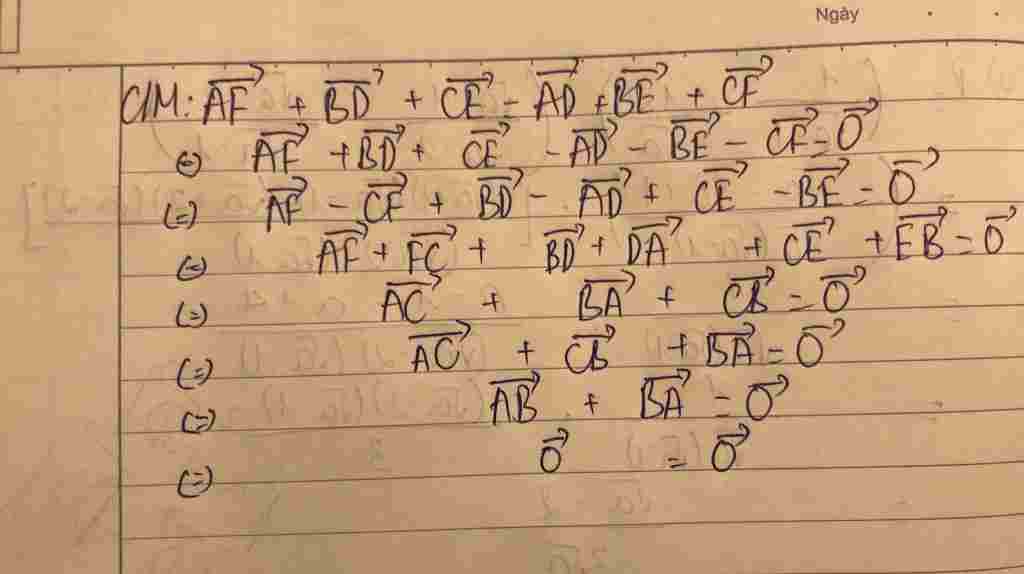 Ngày
C/M: $\overrightarrow{AF} + \overrightarrow{BD} + \overrightarrow{CE} = \overrightarrow{AD} + \overrightarrow{BE} + \overrightarrow{CF}$
(=) $\overrightarrow{AF} + \overrightarrow{BD} + \overrightarrow{CE} - \overrightarrow{AD} - \overrightarrow{BE} - \overrightarrow{CF} = \overrightarrow{O}$
(=) $\overrightarrow{AF} - \overrightarrow{CF} + \overrightarrow{BD} - \overrightarrow{AD} + \overrightarrow{CE} - \overrightarrow{BE} = \overrightarrow{O}$
(=) $\overrightarrow{AF} + \overrightarrow{FC} + \overrightarrow{BD} + \overrightarrow{DA} + \overrightarrow{CE} + \overrightarrow{EB} = \overrightarrow{O}$
(=) $\overrightarrow{AC} + \overrightarrow{BA} + \overrightarrow{CB} = \overrightarrow{O}$
(=) $\overrightarrow{AC} + \overrightarrow{CB} + \overrightarrow{BA} = \overrightarrow{O}$
(=) $\overrightarrow{AB} + \overrightarrow{BA} = \overrightarrow{O}$
(=) $\overrightarrow{O} = \overrightarrow{O}$